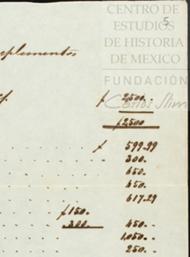 CENTRO DE
ESTUDIOS
DE HISTORIA
DE MEXICO
FUNDACIÓN
5
plementos
$ 2500.
$ 2500
$ 599.99
300.
450.
450.
617.29
$ 150.
300. 450.
1,050.
250.